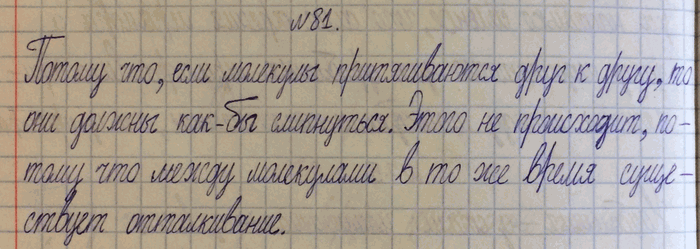 №81.
Потому что, если молекулы притягиваются друг к другу, то
они должны как-бы слипнуться. Этого не происходит, по-
тому что между молекулами в то же время суще-
ствует отталкивание.